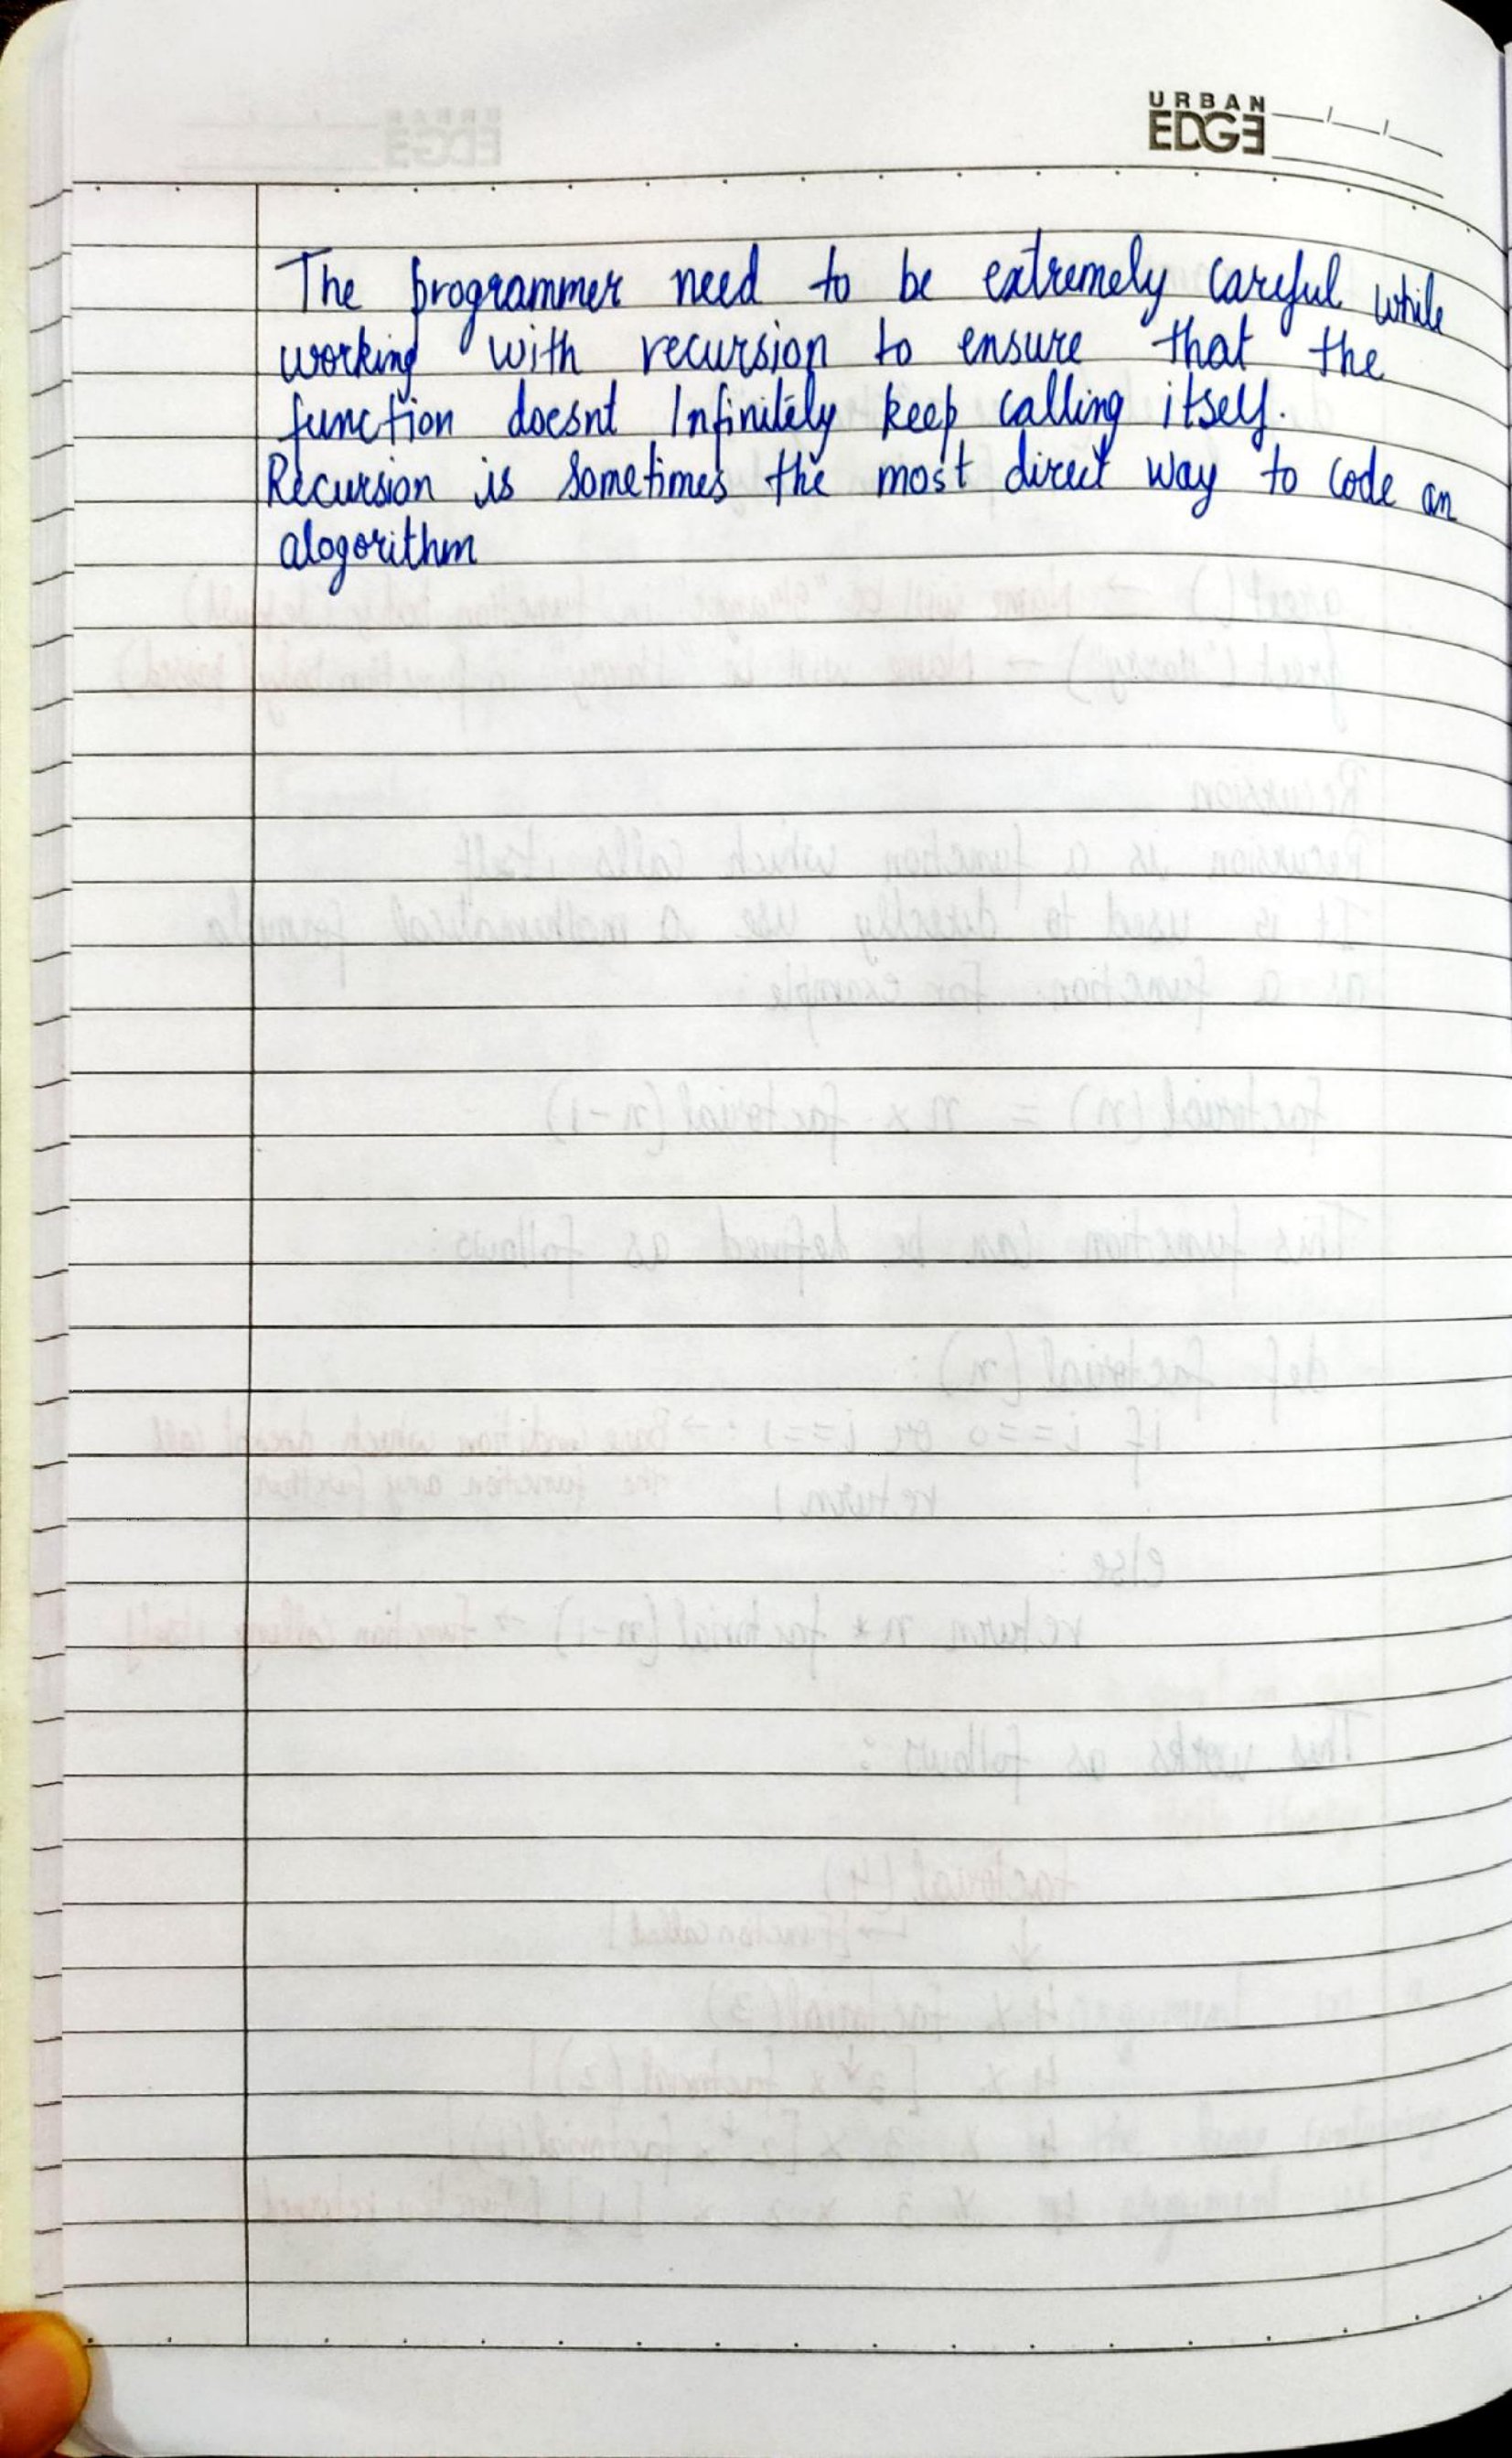 URBAN
EDGE
The programmer need to be extremely careful while
working with recursion to ensure that the
function doesnt Infinitely keep calling itself.
Recursion is sometimes the most direct way to code an
alogorithm